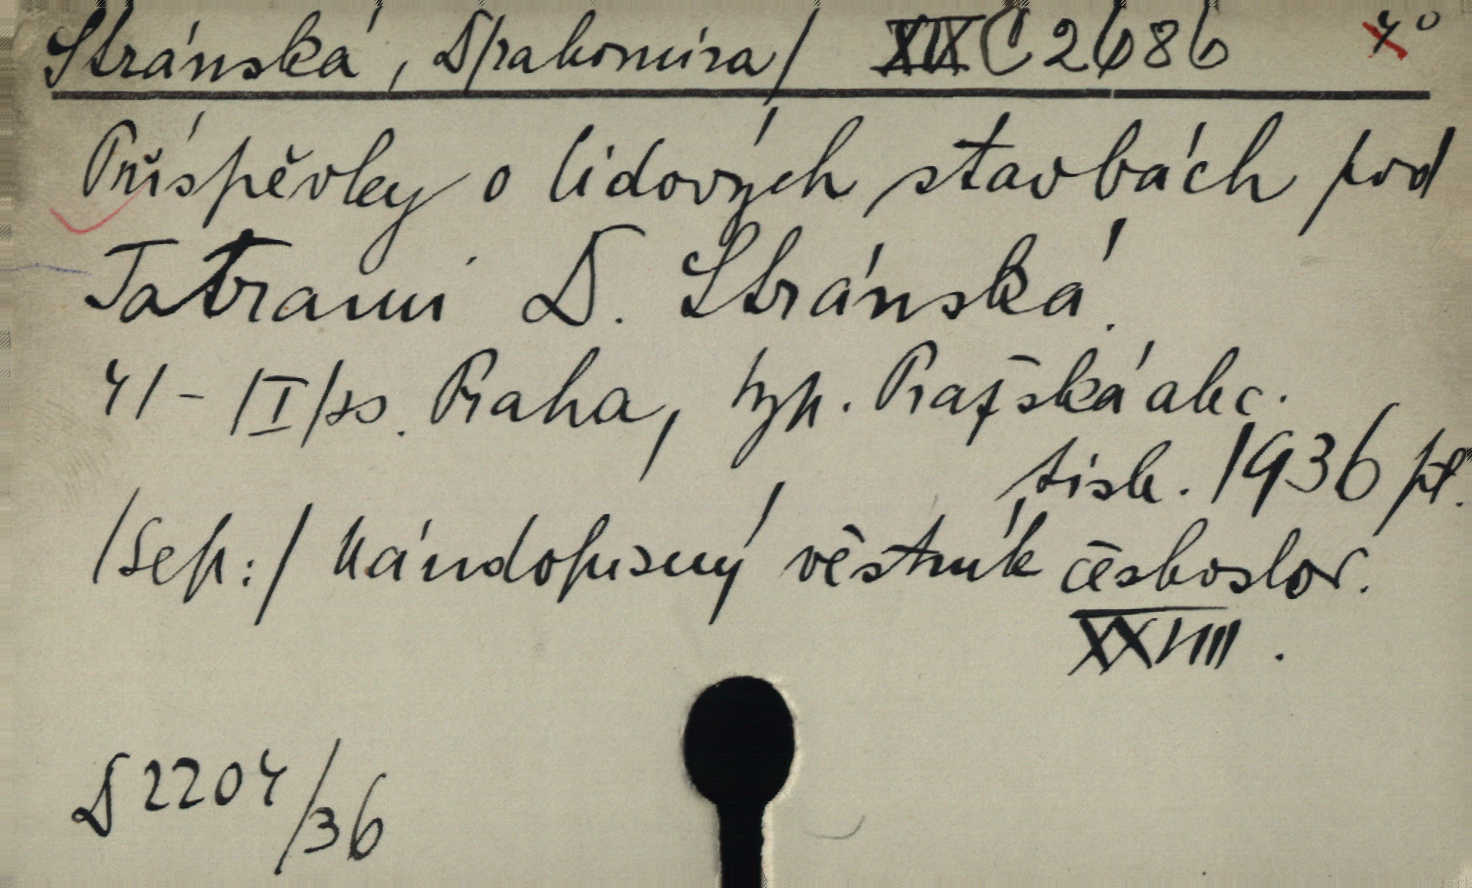 Stránská, D/rahomíra/ XIX C 2686 4°
Příspěvky o lidových stavbách pod
Tatrami D. Stránská.
41 - /I/ ss. Praha, typ. Pražská akc.
tisk. 1936 př.
/Sep:/ Národopisný věstník českoslov.
XXVIII.
D 2204/36